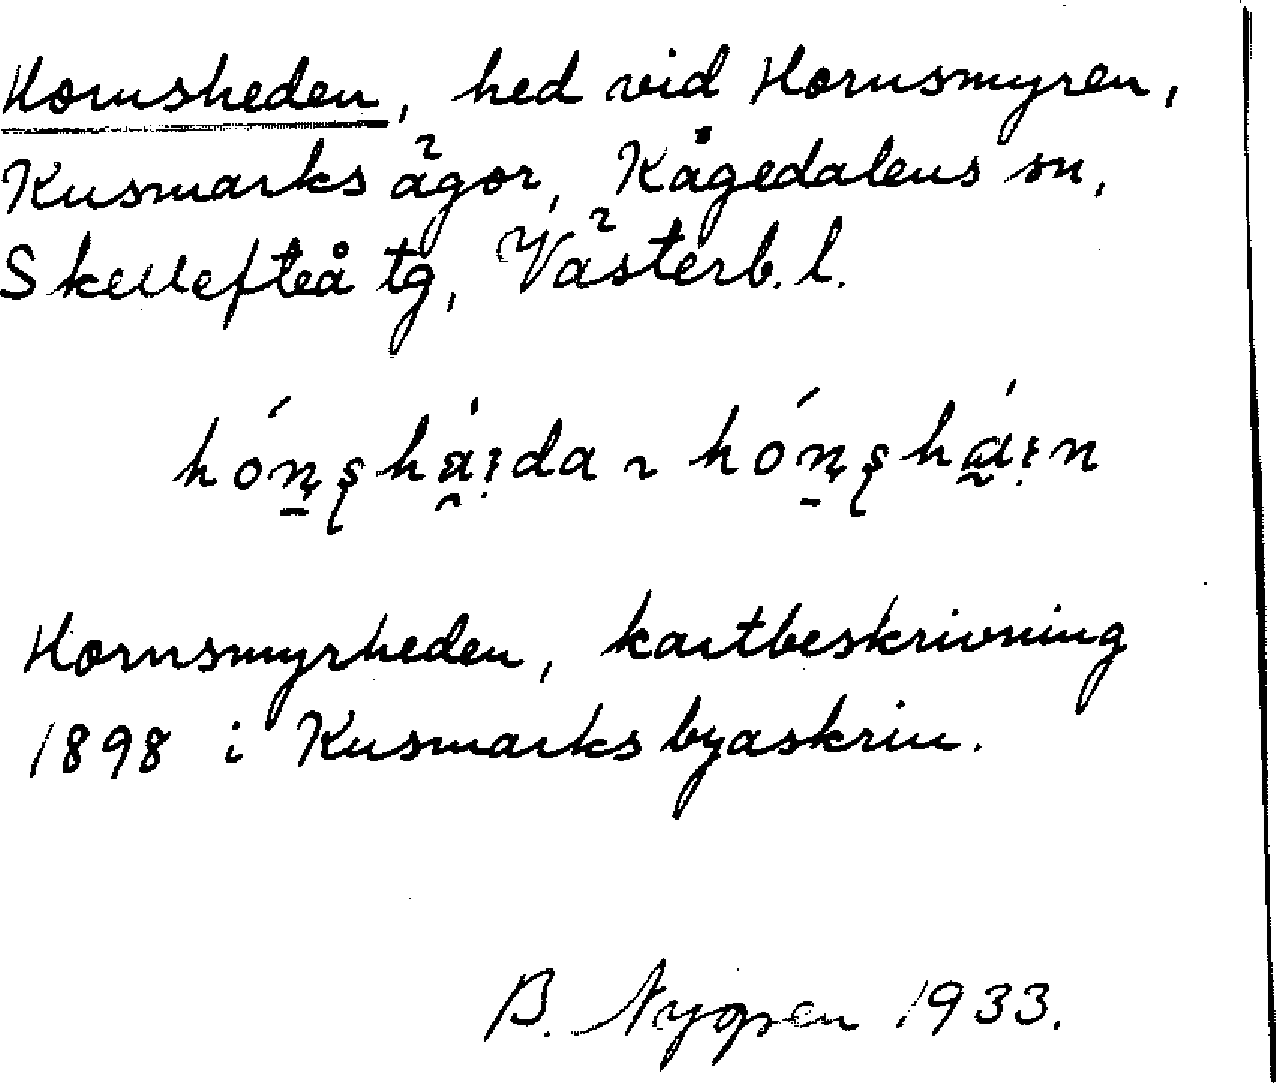 Hornsheden, hed vid Hornsmyren,
Kusmarks ägor, Kågedalens sn,
Skellefteå tg, Västerb. l.
hón̠ʂhа̀ịda ~ hón̠ʂhа́ịn
Hornsmyrheden, kartbeskrivning
1898 i Kusmarks byaskrin.
B. Nygren 1933.